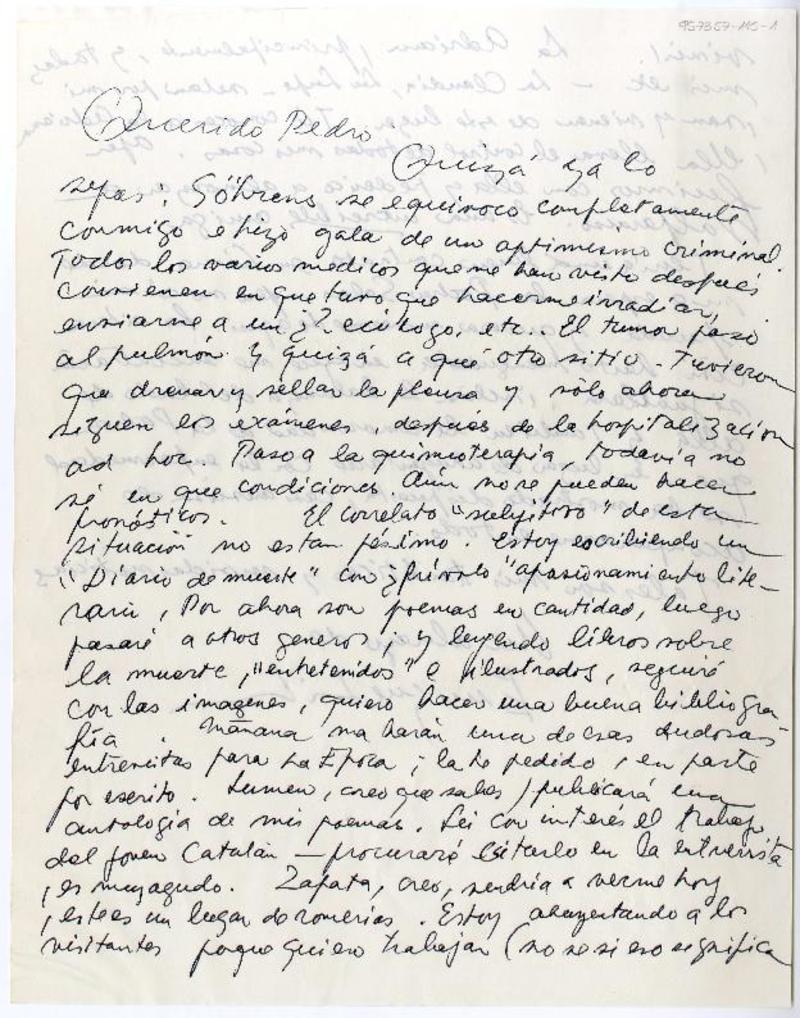 957357-MS-1
Querido Pedro
Quizá ya lo
sepas: Göhrens se equivocó completamente
conmigo e hizo gala de un optimismo criminal.
Todos los varios médicos que me han visto después
convienen en que tuvo que hacerme irradiar,
enviarme a un ¿? ecólogo, etc.. El tumor pasó
al pulmón y quizá a qué otro sitio. Tuvieron
que drenar y sellar la pleura y sólo ahora
siguen los exámenes, después de la hospitalización
ad hoc. Paso a la quimioterapia, todavía no
sé en que condiciones. Aún no se pueden hacer
pronósticos. El correlato "subjetivo" de esta
situación no es tan pésimo. Estoy escribiendo un
"Diario de muerte" con ¿frívolo "apasionamiento lite-
rario, Por ahora son poemas en cantidad, luego
pasaré a otros generos; y leyendo libros sobre
la muerte, "entretenidos" e ilustrados, seguiré
con las imagenes, quiero hacer una buena bibliogra-
fía. Mañana me harán una de esas dudosas
entrevistas para La Epoca; la he pedido, en parte
por escrito. Lumen, creo que sabes, publicará una
antología de mis poemas. Leí con interés el trabajo
del joven Catalán — procuraré citarlo en la entrevista
, es muy agudo. Zapata, creo, vendría a verme hoy
, este es un lugar de romerías. Estoy ahuyentando a los
visitantes porque quiero trabajar (no se si eso significa